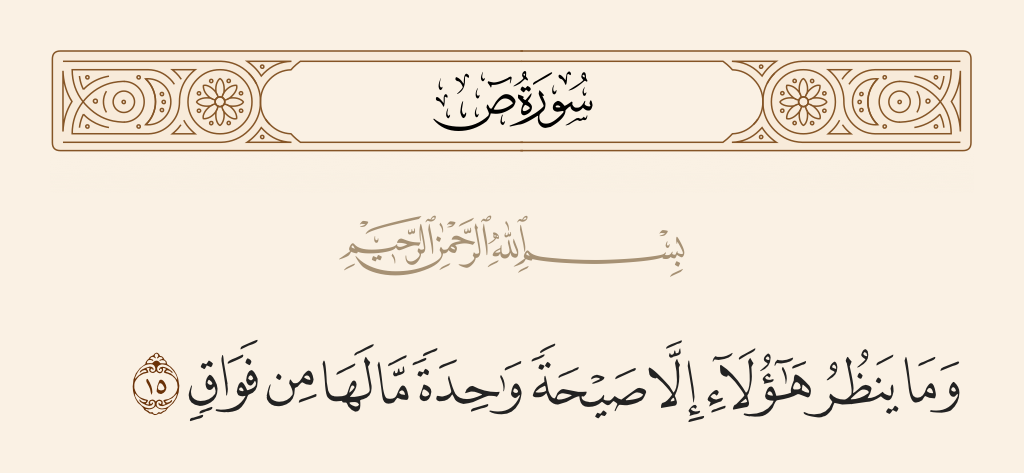 سُورَةُ صٓ
بِسْمِ ٱللَّهِ ٱلرَّحْمَٰنِ ٱلرَّحِيمِ
وَمَا يَنظُرُ هَٰٓؤُلَآءِ إِلَّا صَيْحَةً وَٰحِدَةً مَّا لَهَا مِن فَوَاقٍ ١٥